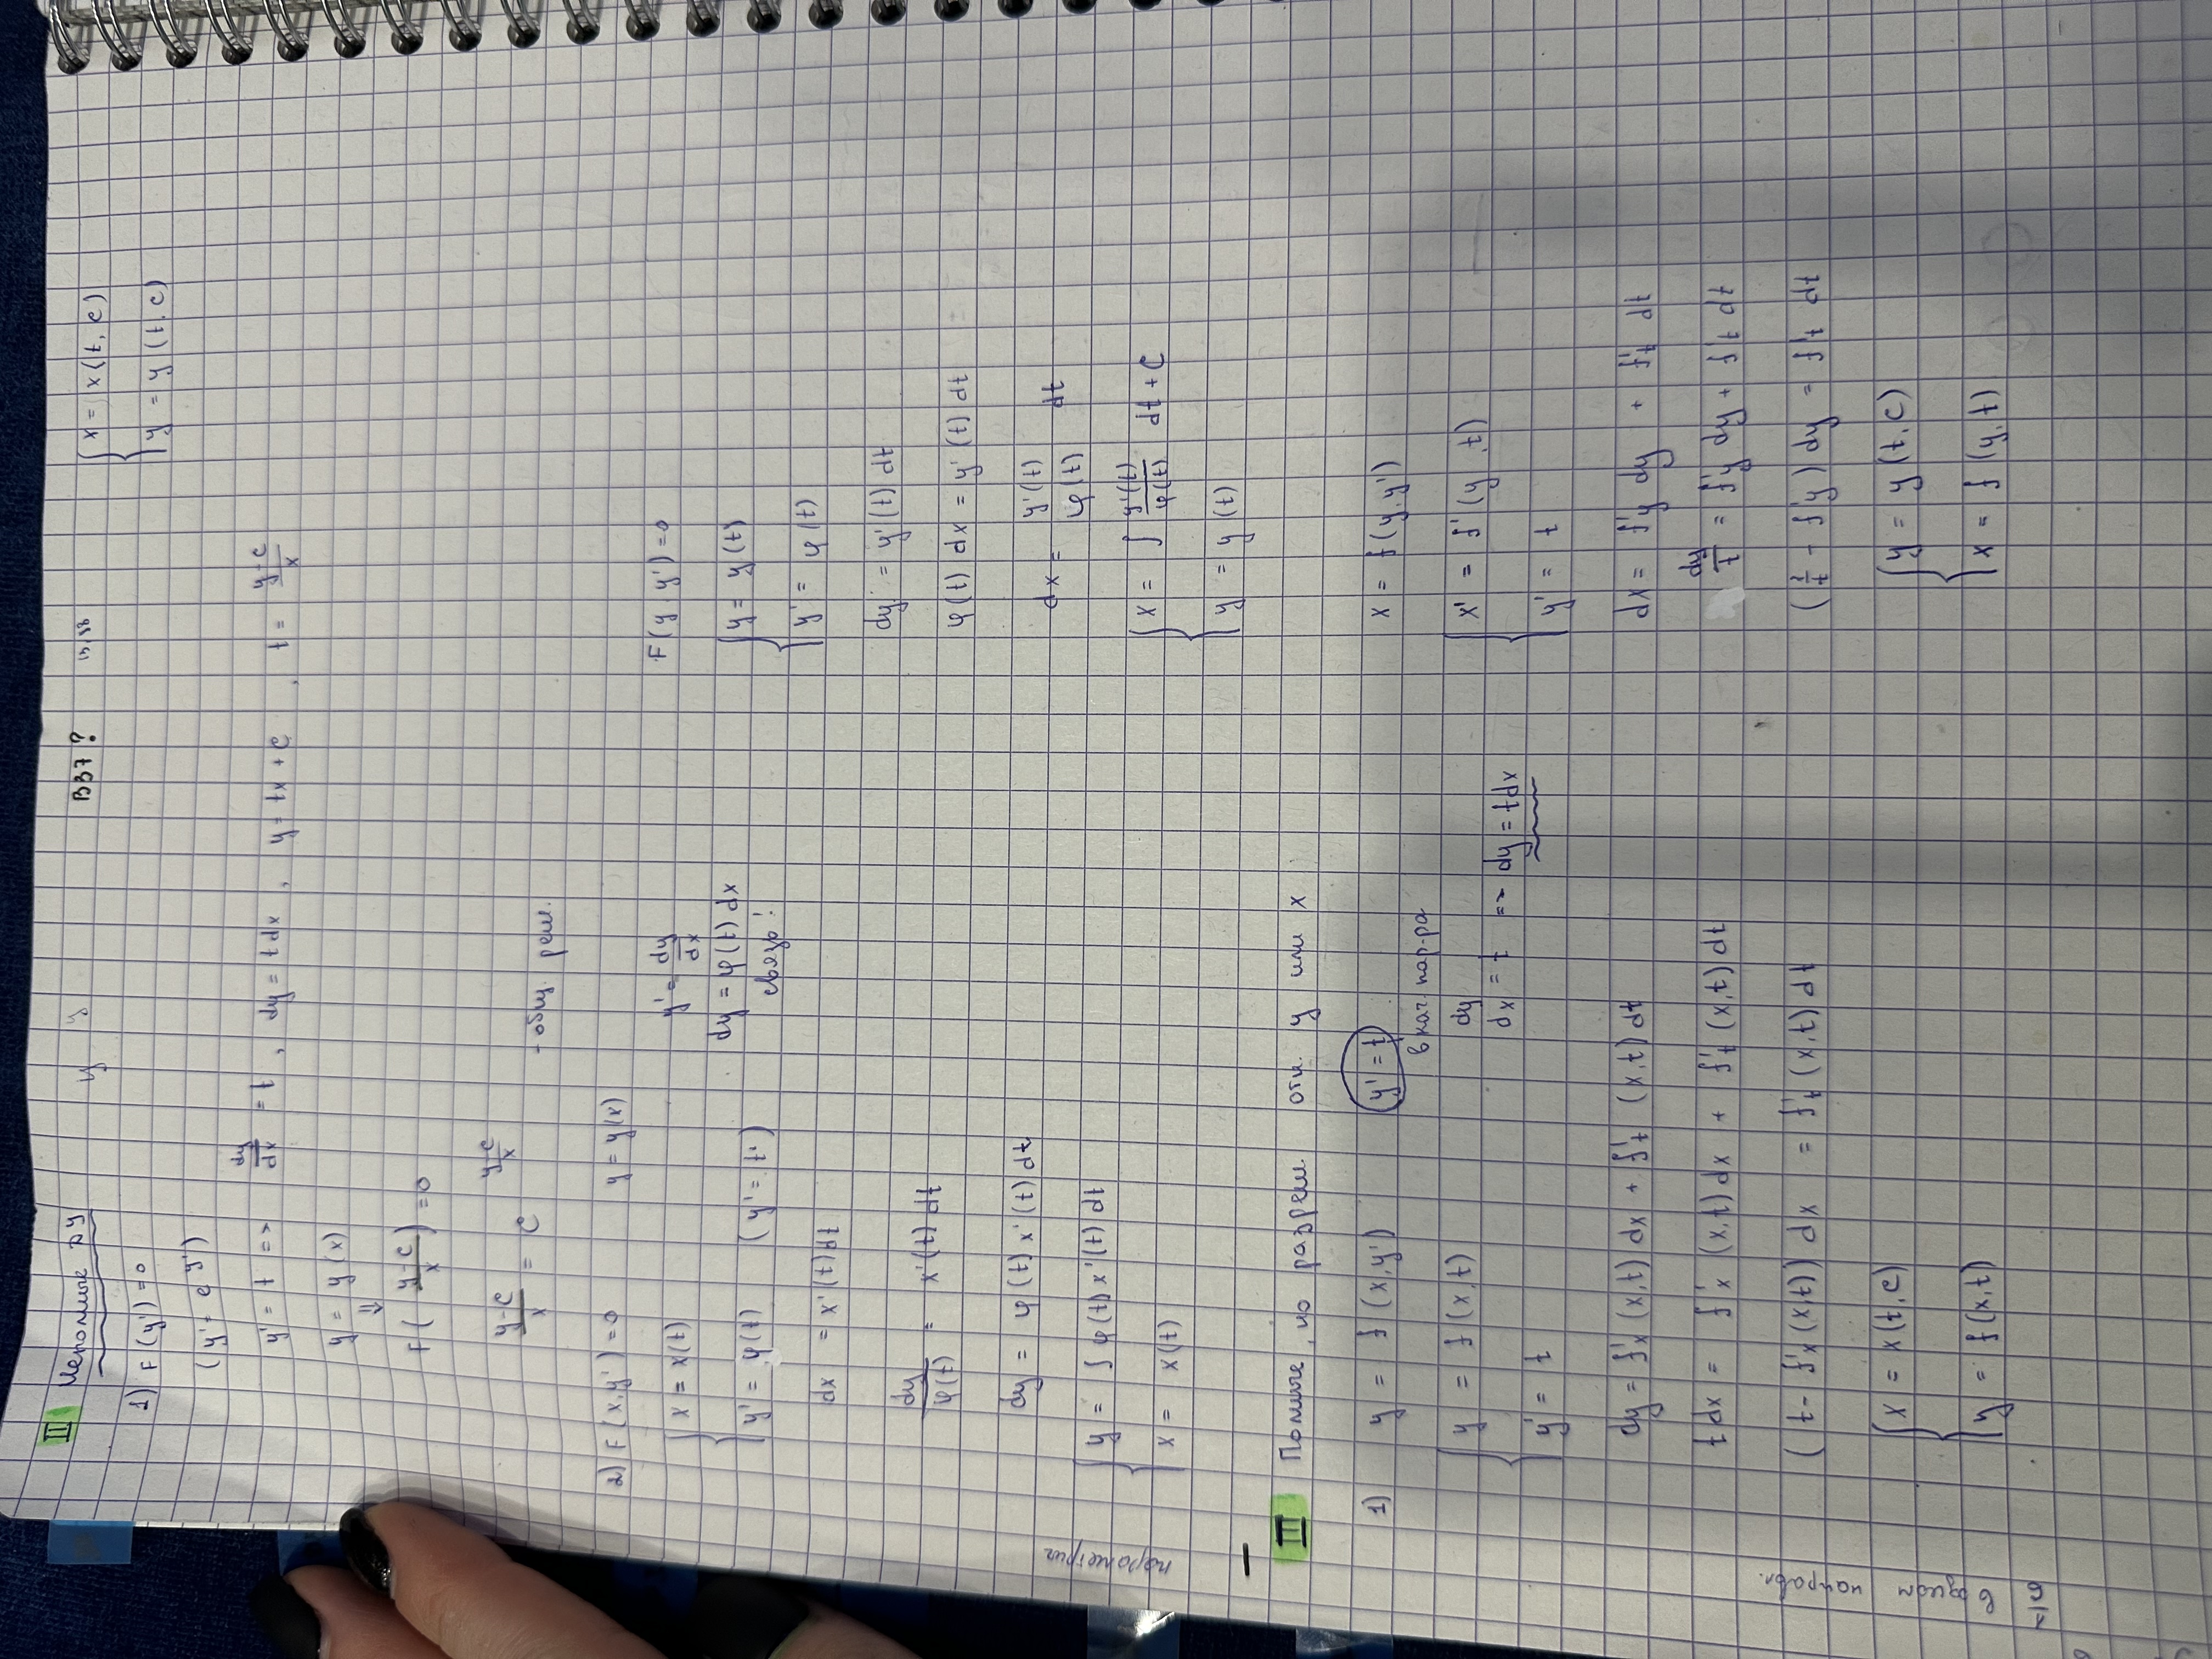 II Неполные ДУ
y y
B37?
13, 38
{ x = x(t, c)
y = y(t, c)
1) F(y') = 0
(y' = e^y')
y' = t => dy/dx = t, dy = t dx, y = tx + C, t = (y-c)/x
y = y(x)
⇓
F((y-c)/x) = 0
(y-c)/x = e^((y-c)/x) - общ. реш.
2) F(x, y') = 0 y = y(x)
{ x = x(t)
y' = φ(t) (y' = t)
y' = dy/dx
dy = φ(t) dx
связь!
dx = x'(t) dt
dy/φ(t) = x'(t) dt
dy = φ(t) x'(t) dt
параметрич
{ y = ∫ φ(t) x'(t) dt
x = x(t)
F(y, y') = 0
{ y = y(t)
y' = φ(t)
dy = y'(t) dt
φ(t) dx = y'(t) dt
dx = y'(t)/φ(t) dt
{ x = ∫ y'(t)/φ(t) dt + C
y = y(t)
III Полные, но разреш. отн. y или x
1) y = f(x, y') y' = t
в кач. пар-ра
{ y = f(x, t)
y' = t
dy/dx = t => dy = t dx
dy = f'x (x, t) dx + f't (x, t) dt
t dx = f'x (x, t) dx + f't (x, t) dt
(t - f'x (x, t)) dx = f't (x, t) dt
{ x = x(t, c)
y = f(x, t)
x = f(y, y')
{ x' = f'(y, t)
y' = t
dx = f'y dy + f't dt
dy/t = f'y dy + f't dt
(1/t - f'y) dy = f't dt
{ y = y(t, C)
x = f(y, t)
в одном направл.